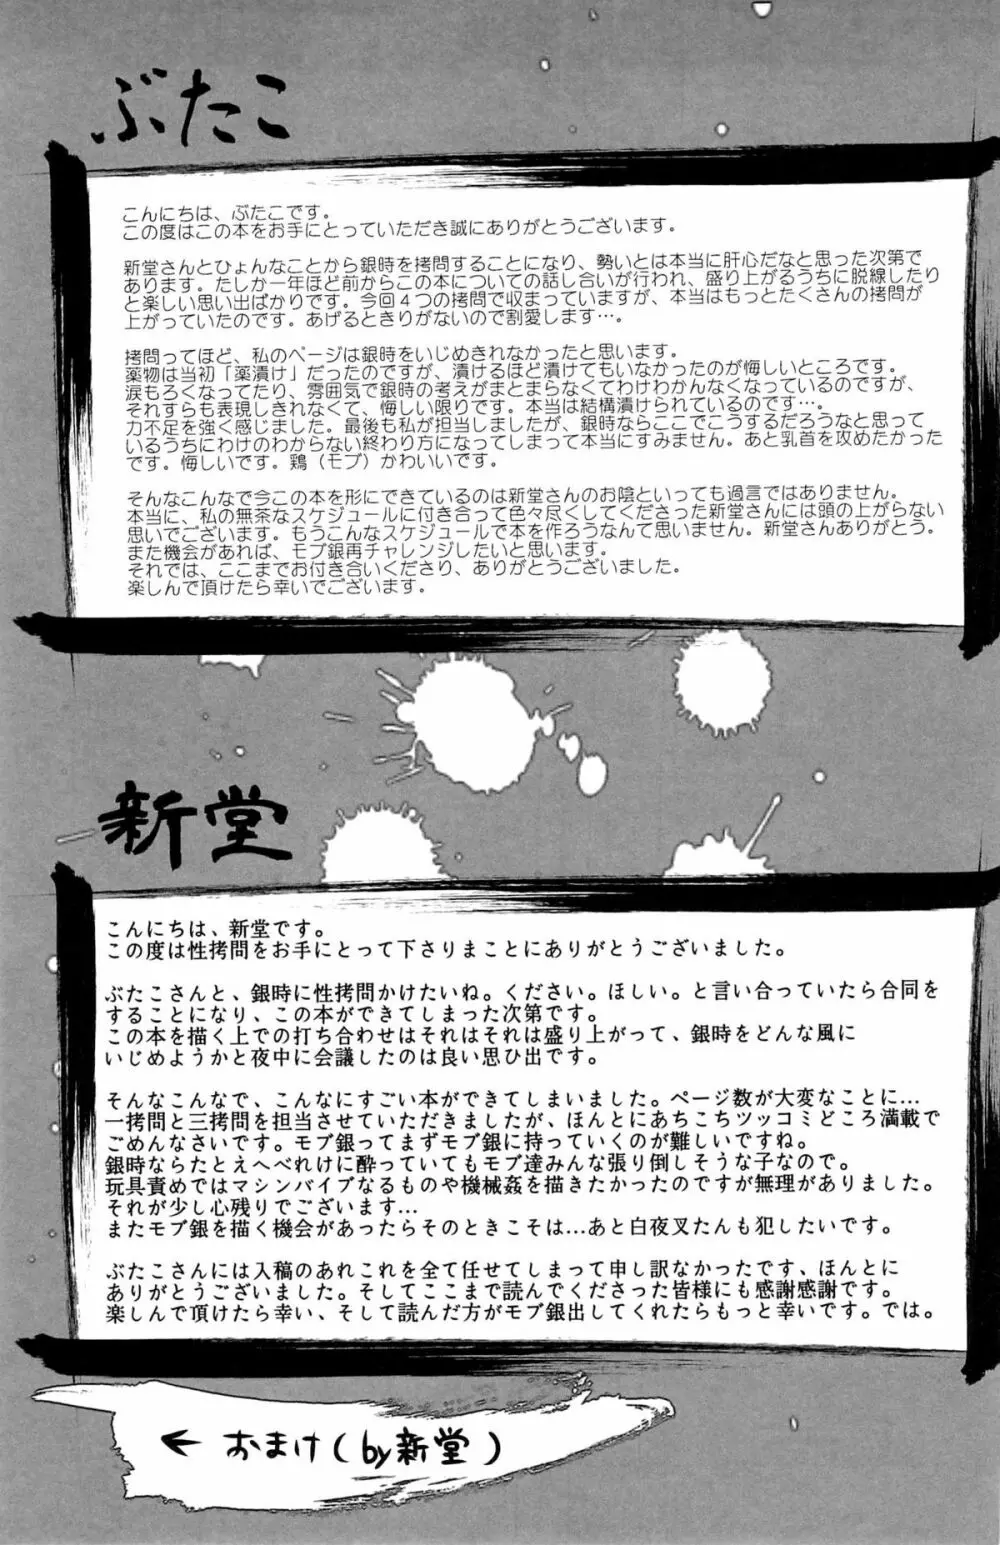 ぶたこ
こんにちは、ぶたこです。
この度はこの本をお手にとっていただき誠にありがとうございます。
新堂さんとひょんなことから銀時を拷問することになり、勢いとは本当に肝心だなと思った次第で
あります。たしか一年ほど前からこの本についての話し合いが行われ、盛り上がるうちに脱線したり
と楽しい思い出ばかりです。今回４つの拷問で収まっていますが、本当はもっとたくさんの拷問が
上がっていたのです。あげるときりがないので割愛します…。
拷問ってほど、私のページは銀時をいじめきれなかったと思います。
薬物は当初「薬漬け」だったのですが、漬けるほど漬けてもいなかったのが悔しいところです。
涙もろくなってたり、雰囲気で銀時の考えがまとまらなくてわけわかんなくなっているのですが、
それすらも表現しきれなくて、悔しい限りです。本当は結構漬けられているのです…。
力不足を強く感じました。最後も私が担当しましたが、銀時ならここでこうするだろうなと思って
いるうちにわけのわからない終わり方になってしまって本当にすみません。あと乳首を攻めたかった
です。悔しいです。鶏（モブ）かわいいです。
そんなこんなで今この本を形にできているのは新堂さんのお陰といっても過言ではありません。
本当に、私の無茶なスケジュールに付き合って色々尽くしてくださった新堂さんには頭の上がらない
思いでございます。もうこんなスケジュールで本を作ろうなんて思いません。新堂さんありがとう。
また機会があれば、モブ銀再チャレンジしたいと思います。
それでは、ここまでお付き合いくださり、ありがとうございました。
楽しんで頂けたら幸いでございます。
新堂
こんにちは、新堂です。
この度は性拷問をお手にとって下さりまことにありがとうございました。
ぶたこさんと、銀時に性拷問かけたいね。ください。ほしい。と言い合っていたら合同を
することになり、この本ができてしまった次第です。
この本を描く上での打ち合わせはそれはそれは盛り上がって、銀時をどんな風に
いじめようかと夜中に会議したのは良い思ひ出です。
そんなこんなで、こんなにすごい本ができてしまいました。ページ数が大変なことに…
一拷問と三拷問を担当させていただきましたが、ほんとにあちこちツッコミどころ満載で
ごめんなさいです。モブ銀ってまずモブ銀に持っていくのが難しいですね。
銀時ならたとえへべれけに酔っていてもモブ達みんな張り倒しそうな子なので。
玩具責めではマシンバイブなるものや機械姦を描きたかったのですが無理がありました。
それが少し心残りでございます…
またモブ銀を描く機会があったらそのときこそは…あと白夜叉たんも犯したいです。
ぶたこさんには入稿のあれこれを全て任せてしまって申し訳なかったです、ほんとに
ありがとうございました。そしてここまで読んでくださった皆様にも感謝感謝です。
楽しんで頂けたら幸い、そして読んだ方がモブ銀出してくれたらもっと幸いです。では。
← おまけ（by新堂）